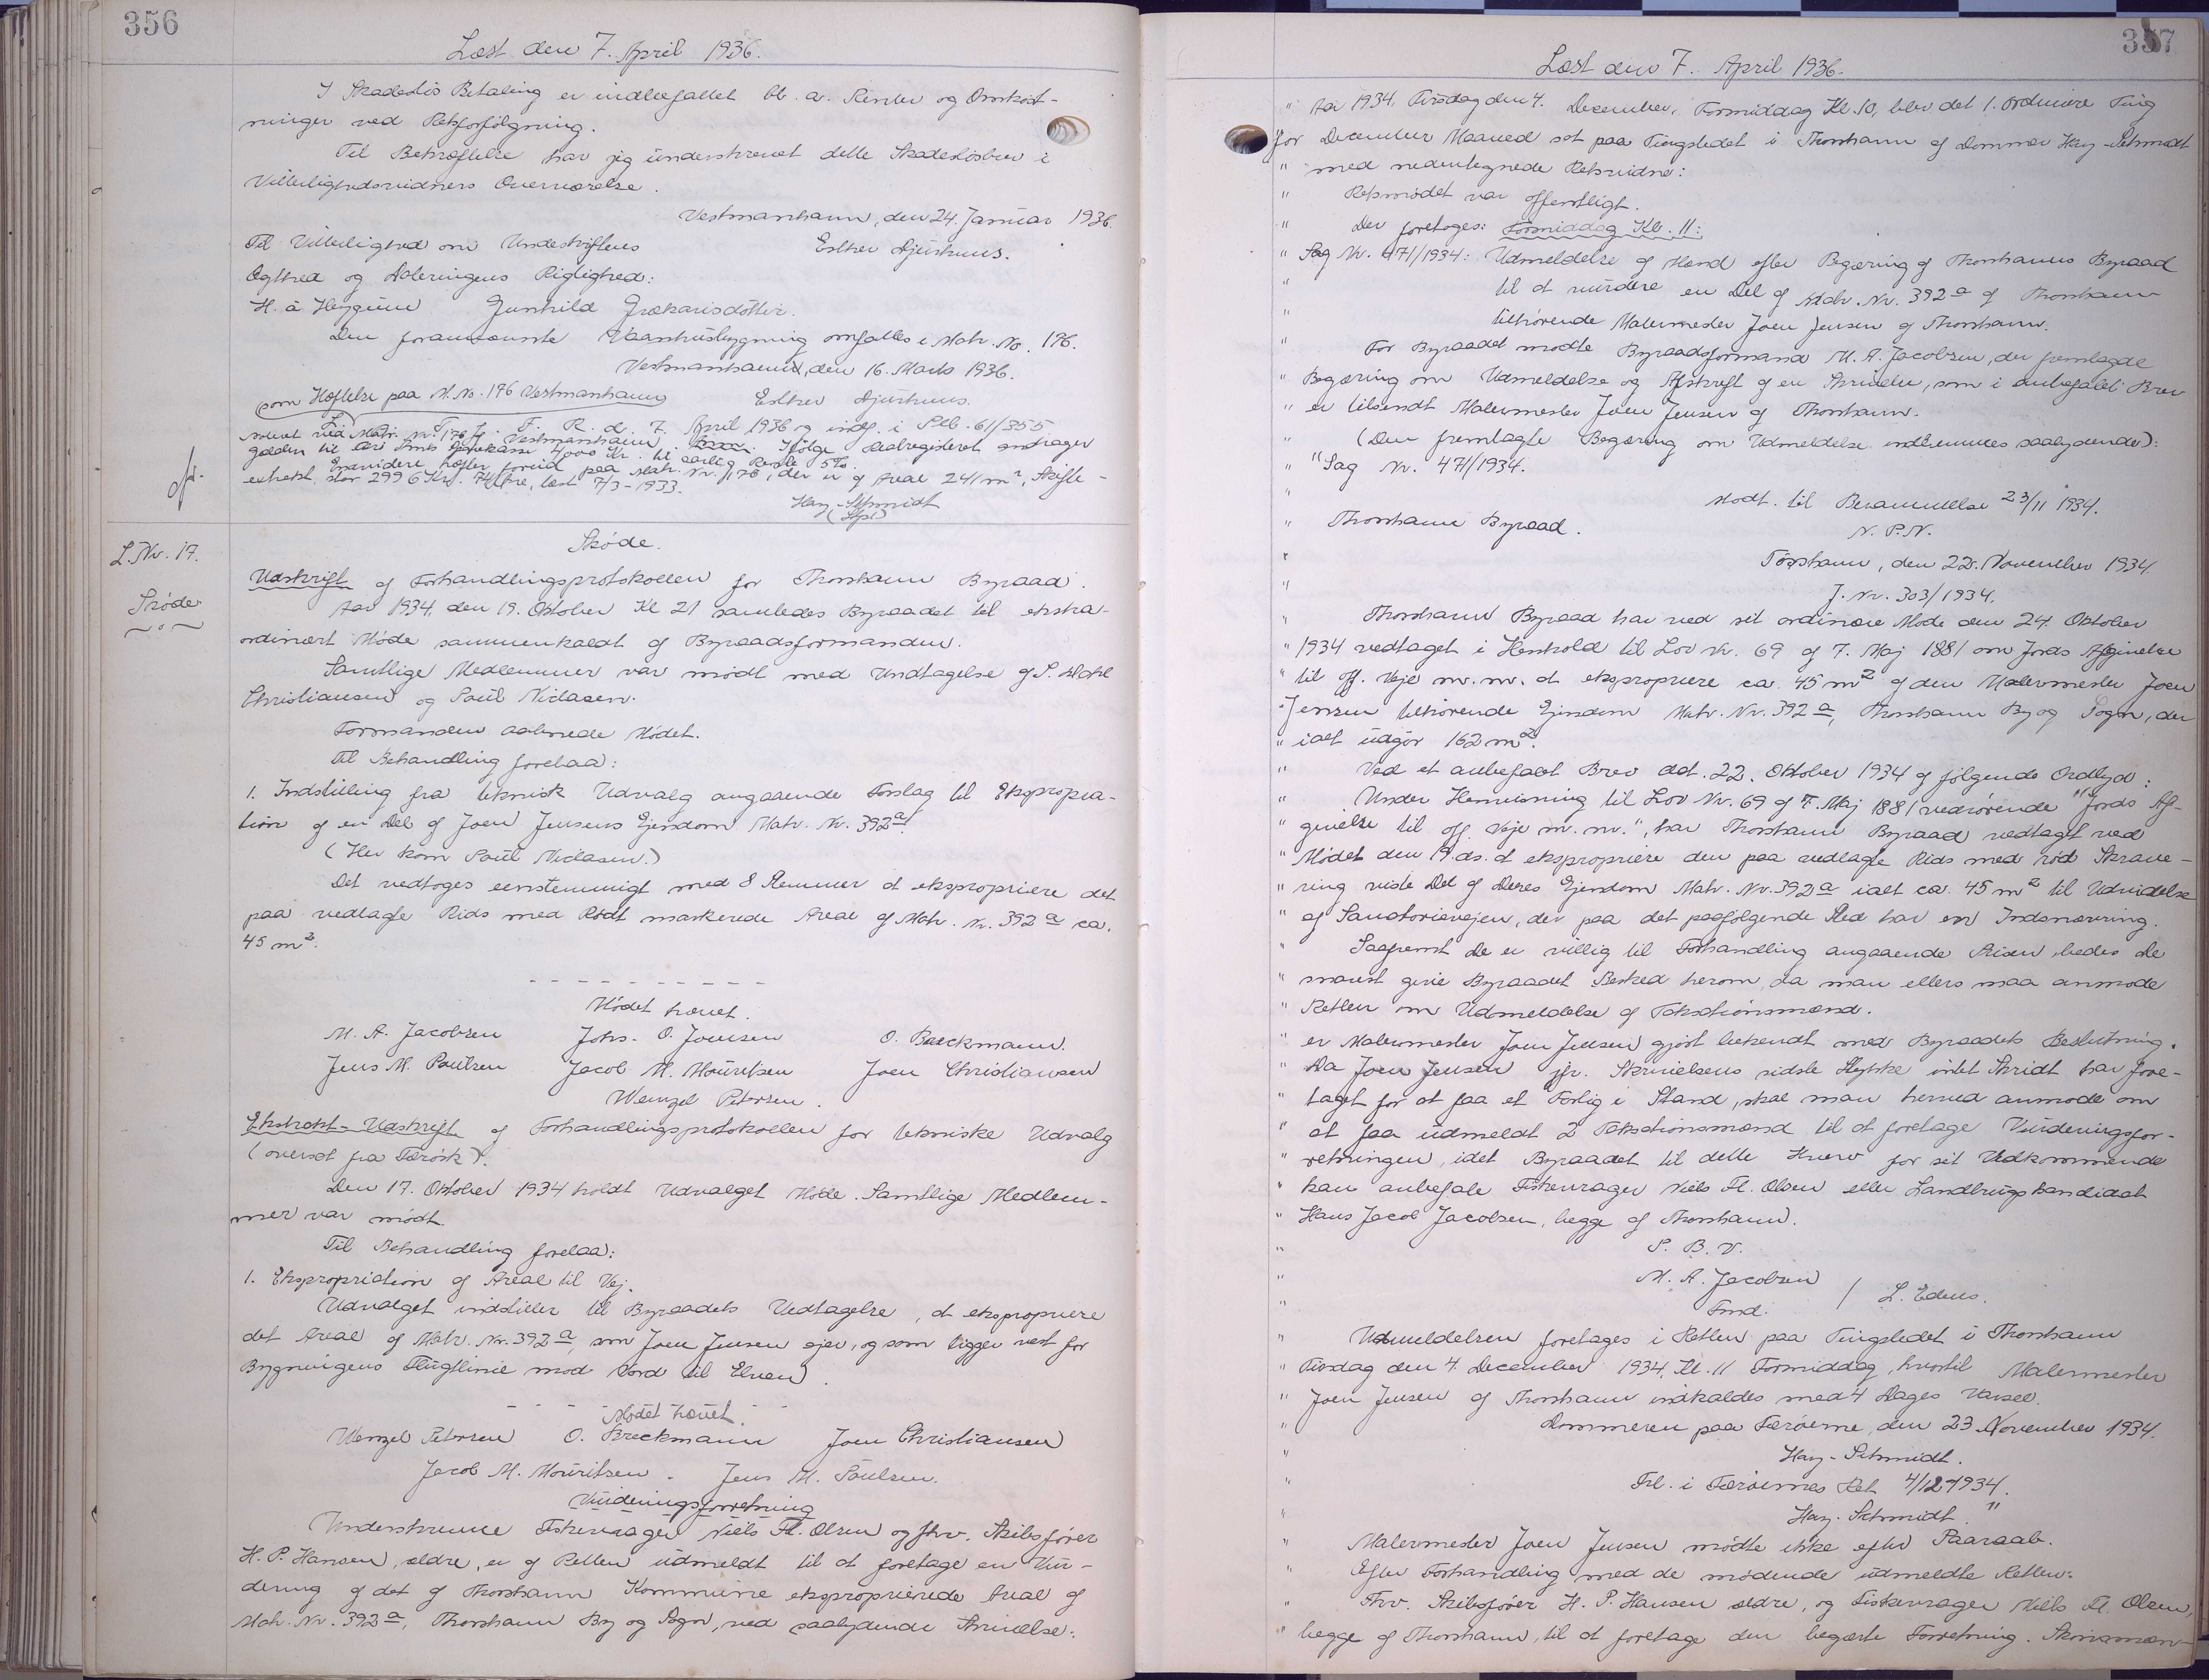 356
Læst den 7. April 1936.
I Skadeslös Betaling er indbefattet bl. a. Renter og Omkost-
ninger ved Retsforfölgning.
Til Bekræftelse har jeg underskrevet dette Skadeslösbrev i
Vitterlighedsvidners Overværelse.
Vestmanhavn, den 24. Januar 1936.
Til Vitterlighed om Underskriftens
Esther Djurhuus.
Ægthed og Dateringens Rigtighed:
H. á Heygum Gunhild Zrakarisdóttir.
Den forannævnte Vaanhusbygning omfattes i Matr. No. 176.
Vestmanhavn, den 16. Marts 1936.
Esther Djurhuus.
som Hæftelse paa M. No. 176 Vestmanhavn
noteret ved Matr. Nr. 176 Vestmanhavn F. R. d. 7. April 1936 og indf. i Pb. 61/355
gælden til Færö Amts Sparekasse 4000 Kr. til aarlig Rente 5%. Ifölge Realregistret andrager
Endvidere hæfter forud paa Matr. Nr. 176, der er af Areal 241 m², Skifte-
extrakt stor 2996 Kr. 74 Öre, læst 7/3-1933.
Hay-Schmidt
L. Nr. 17.
Sköde
Sköde.
Udskrift af Forhandlingsprotokollen for Thorshavn Byraad.
Aar 1934, den 19. Oktober Kl 21 samledes Byraadet til ekstra-
ordinært Möde sammenkaldt af Byraadsformanden.
Samtlige Medlemmer var mödt med Undtagelse af P. Mohr
Christiansen og Poul Niclasen.
Formanden aabnede Mödet.
Til Behandling forelaa:
1. Indstilling fra teknisk Udvalg angaaende Forslag til Ekspropria-
tion af en Del af Joen Jensens Ejendom Matr. Nr. 392 a.
(Her kom Poul Niclasen.)
Det vedtoges eenstemmigt med 8 Stemmer at ekspropriere det
paa vedlagte Rids med Rödt markerede Areal af Matr. Nr. 392 a ca.
45 m².
- - - - - - - - - -
Mödet hævet.
M. A. Jacobsen Johs. O. Joensen O. Bæckmann.
Jens M. Poulsen Jacob M. Mouritsen Joen Christiansen
Wenzel Petersen.
Ekstrakt-Udskrift af Forhandlingsprotokollen for tekniske Udvalg
(oversat fra Færösk).
Den 17. Oktober 1934 holdt Udvalget Möde. Samtlige Medlem-
mer var mödt.
Til Behandling forelaa:
1. Ekspropriation af Areal til Vej.
Udvalget indstiller til Byraadets Vedtagelse, at ekspropriere
det Areal af Matr. Nr. 392 a, som Joen Jensen ejer, og som ligger vest for
Bygningens Flugtlinie mod Nord til Elven.
- - - - - -
Mödet hævet.
Wenzel Petersen O. Bæckmann Joen Christiansen
Jacob M. Mouritsen. Jens M. Poulsen.
Vurderingsforretning
Underskrevne Fiskevrager Niels Fl. Olsen og fhv. Skibsförer
H. P. Hansen, ældre, er af Retten udmeldt til at foretage en Vur-
dering af det af Thorshavn Kommune eksproprierede Areal af
Matr. Nr. 392 a, Thorshavn By og Sogn, ved saalydende Skrivelse:
357
Læst den 7. April 1936.
" Aar 1934, Tirsdag den 4. December, Formiddag Kl. 10, blev det 1. ordinære Ting
for December Maaned sat paa Tingstedet i Thorshavn af Dommer Hay-Schmidt
" med nedentegnede Retsvidne:
" Retsmödet var offentligt.
" Der foretoges: Formiddag Kl. 11:
" Sag Nr. 471/1934: Udmeldelse af Mænd efter Begæring af Thorshavns Byraad
" til at vurdere en Del af Matr. Nr. 392 a af Thorshavn
" tilhörende Malermester Joen Jensen af Thorshavn.
" For Byraadet mödte Byraadsformand M. A. Jacobsen, der fremlagde
" Begæring om Udmeldelse og Afskrift af en Skrivelse, som i anbefalet Brev
" er tilsendt Malermester Joen Jensen af Thorshavn.
" (Den fremlagte Begæring om Udmeldelse indlemmes saalydende):
" "Sag Nr. 471/1934.
" Modt. til Berammelse 23/11 1934.
" Thorshavn Byraad. N. P. N.
" Tórshavn, den 22. November 1934.
" J. Nr. 303/1934.
" Thorshavn Byraad har ved sit ordinære Möde den 24. Oktober
" 1934 vedtaget i Henhold til Lov Nr. 69 af 7. Maj 1881 om Jords Afgivelse
" til off. Veje m. m. at ekspropriere ca. 45 m² af den Malermester Joen
" Jensen tilhörende Ejendom Matr. Nr. 392 a, Thorshavn By og Sogn, der
" ialt udgör 162 m².
" Ved et anbefalet Brev dat. 22. Oktober 1934 af fölgende Ordlyd:
" Under Henvisning til Lov Nr. 69 af 7. Maj 1881 vedrörende "Jords Af-
" givelse til off. Veje m. m.", har Thorshavn Byraad vedtaget ved
" Mödet den 19. ds. at ekspropriere den paa vedlagte Rids med röd Skrave-
" ring viste Del af Deres Ejendom Matr. Nr. 392 a ialt ca. 45 m² til Udvidelse
" af Sanatorievejen, der paa det paafölgende Sted har en Indsnævring.
" Saafremt De er villig til Forhandling angaaende Prisen, bedes De
" snarest give Byraadet Besked herom, da man ellers maa anmode
" Retten om Udmeldelse af Taksationsmænd.
" er Malermester Joen Jensen gjort bekendt med Byraadets Beslutning.
" Da Joen Jensen jfr. Skrivelsens sidste Stykke intet Skridt har fore-
" taget for at faa et Forlig i Stand, skal man herved anmode om
" at faa udmeldt 2 Taksationsmænd til at foretage Vurderingsfor-
" retningen, idet Byraadet til dette Hverv for sit Vedkommende
" kan anbefale Fiskevrager Niels Fl. Olsen eller Landbrugskandidat
" Hans Jacob Jacobsen, begge af Thorshavn.
" P. B. V.
" M. A. Jacobsen
" Fmd. / L. Edens.
" Udmeldelsen foretages i Retten paa Tingstedet i Thorshavn
" Tirsdag den 4. December 1934, Kl. 11 Formiddag, hvortil Malermester
" Joen Jensen af Thorshavn indkaldes med 4 Dages Varsel.
" Dommeren paa Færöerne, den 23 November 1934.
" Hay-Schmidt.
" Frl. i Færöernes Ret 4/12-1934.
" Hay-Schmidt."
" Malermester Joen Jensen mödte ikke efter Paaraab.
" Efter Forhandling med de mödende udmeldte Retten:
" Fhv. Skibsförer H. P. Hansen ældre, og Fiskevrager Niels Fl. Olsen,
" begge af Thorshavn, til at foretage den begærte Forretning. Skönsmæn-